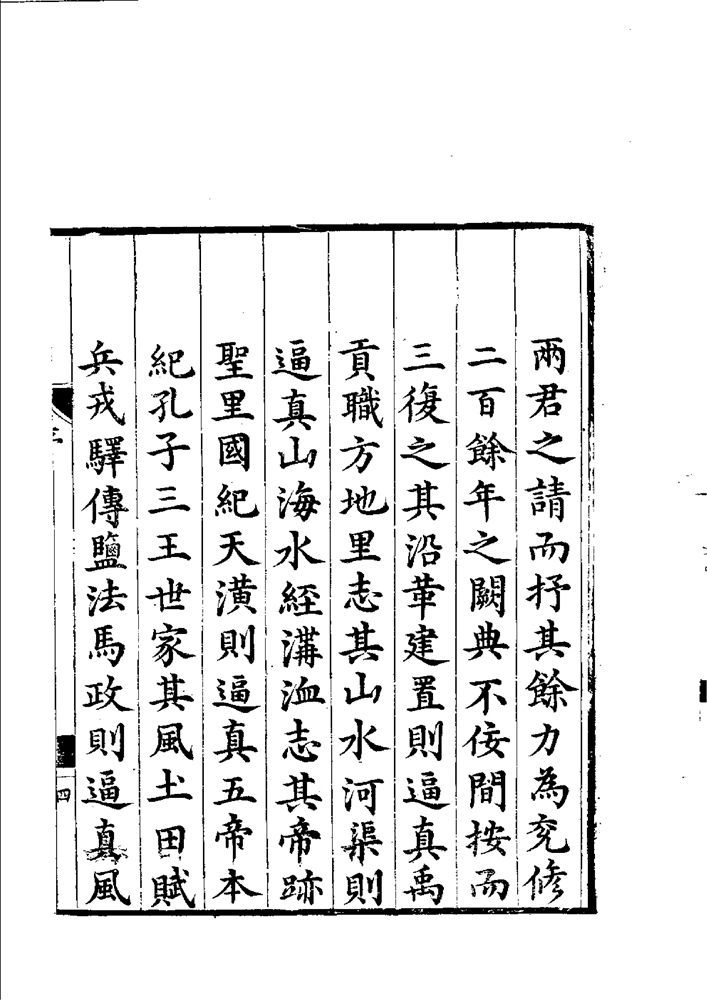 兩君之請而抒其餘力為兗修
二百餘年之闕典不佞間按而
三復之其沿革建置則逼真禹
貢職方地里志其山水河渠則
逼真山海水經溝洫志其帝跡
聖里國紀天潢則逼真五帝本
紀孔子三王世家其風土田賦
兵戎驛傳鹽法馬政則逼真風
四